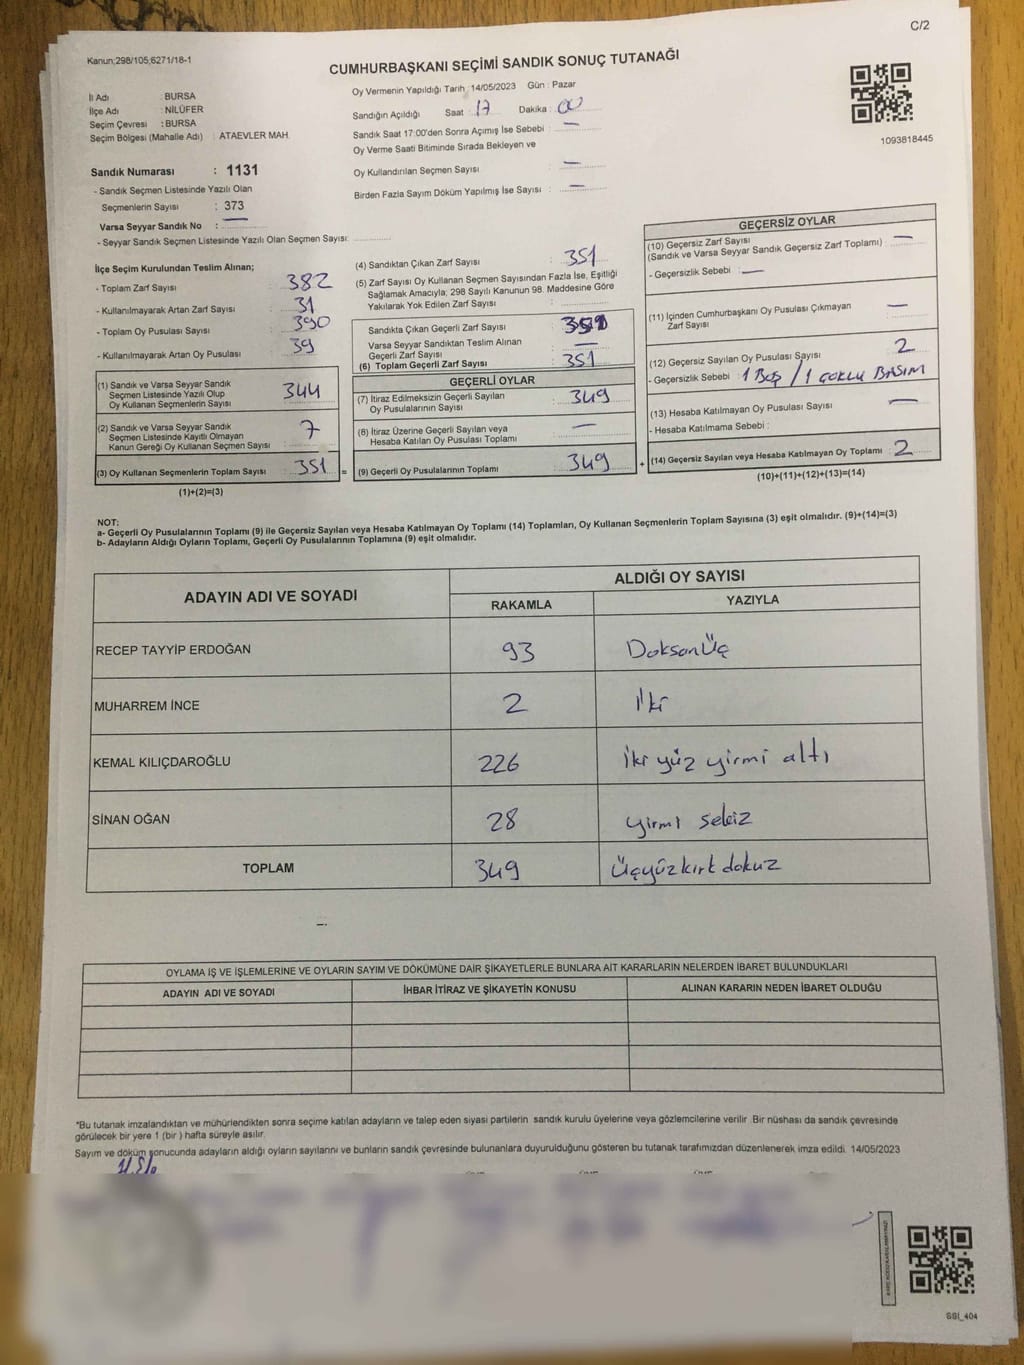 C/2
Kanun;298/105;6271/18-1
CUMHURBAŞKANI SEÇİMİ SANDIK SONUÇ TUTANAĞI
İl Adı : BURSA
İlçe Adı : NİLÜFER
Seçim Çevresi : BURSA
Seçim Bölgesi (Mahalle Adı) : ATAEVLER MAH.
Sandık Numarası : 1131
- Sandık Seçmen Listesinde Yazılı Olan
Seçmenlerin Sayısı : 373
Varsa Seyyar Sandık No : —
- Seyyar Sandık Seçmen Listesinde Yazılı Olan Seçmen Sayısı:
Oy Vermenin Yapıldığı Tarih : 14/05/2023 Gün : Pazar
Sandığın Açıldığı Saat : 17 Dakika : 00
Sandık Saat 17:00'den Sonra Açımış İse Sebebi : —
Oy Verme Saati Bitiminde Sırada Bekleyen ve
Oy Kullandırılan Seçmen Sayısı : —
Birden Fazla Sayım Döküm Yapılmış İse Sayısı : —
1093818445
İlçe Seçim Kurulundan Teslim Alınan;
- Toplam Zarf Sayısı : 382
- Kullanılmayarak Artan Zarf Sayısı : 31
- Toplam Oy Pusulası Sayısı : 390
- Kullanılmayarak Artan Oy Pusulası : 39
(1) Sandık ve Varsa Seyyar Sandık
Seçmen Listesinde Yazılı Olup
Oy Kullanan Seçmenlerin Sayısı : 344
(2) Sandık ve Varsa Seyyar Sandık
Seçmen Listesinde Kayıtlı Olmayan
Kanun Gereği Oy Kullanan Seçmen Sayısı : 7
(3) Oy Kullanan Seçmenlerin Toplam Sayısı : 351 =
(1)+(2)=(3)
(4) Sandıktan Çıkan Zarf Sayısı : 351
(5) Zarf Sayısı Oy Kullanan Seçmen Sayısından Fazla İse, Eşitliği
Sağlamak Amacıyla; 298 Sayılı Kanunun 98. Maddesine Göre
Yakılarak Yok Edilen Zarf Sayısı :
Sandıkta Çıkan Geçerli Zarf Sayısı : 351
Varsa Seyyar Sandıktan Teslim Alınan
Geçerli Zarf Sayısı : —
(6) Toplam Geçerli Zarf Sayısı : 351
GEÇERLİ OYLAR
(7) İtiraz Edilmeksizin Geçerli Sayılan
Oy Pusulalarının Sayısı : 349
(8) İtiraz Üzerine Geçerli Sayılan veya
Hesaba Katılan Oy Pusulası Toplamı : —
(9) Geçerli Oy Pusulalarının Toplamı : 349 +
GEÇERSİZ OYLAR
(10) Geçersiz Zarf Sayısı
(Sandık ve Varsa Seyyar Sandık Geçersiz Zarf Toplamı) : —
- Geçersizlik Sebebi : —
(11) İçinden Cumhurbaşkanı Oy Pusulası Çıkmayan
Zarf Sayısı : —
(12) Geçersiz Sayılan Oy Pusulası Sayısı : 2
- Geçersizlik Sebebi : 1 BOŞ / 1 ÇOKLU BASIM
(13) Hesaba Katılmayan Oy Pusulası Sayısı : —
- Hesaba Katılmama Sebebi :
(14) Geçersiz Sayılan veya Hesaba Katılmayan Oy Toplamı : 2
(10)+(11)+(12)+(13)=(14)
NOT:
a- Geçerli Oy Pusulalarının Toplamı (9) ile Geçersiz Sayılan veya Hesaba Katılmayan Oy Toplamı (14) Toplamları, Oy Kullanan Seçmenlerin Toplam Sayısına (3) eşit olmalıdır. (9)+(14)=(3)
b- Adayların Aldığı Oyların Toplamı, Geçerli Oy Pusulalarının Toplamına (9) eşit olmalıdır.
ADAYIN ADI VE SOYADI
ALDIĞI OY SAYISI
RAKAMLA YAZIYLA
RECEP TAYYİP ERDOĞAN 93 DoksanÜç
MUHARREM İNCE 2 İki
KEMAL KILIÇDAROĞLU 226 iki yüz yirmi altı
SİNAN OĞAN 28 yirmi sekiz
TOPLAM 349 Üçyüzkırkdokuz
OYLAMA İŞ VE İŞLEMLERİNE VE OYLARIN SAYIM VE DÖKÜMÜNE DAİR ŞİKAYETLERLE BUNLARA AİT KARARLARIN NELERDEN İBARET BULUNDUKLARI
ADAYIN ADI VE SOYADI İHBAR İTİRAZ VE ŞİKAYETİN KONUSU ALINAN KARARIN NEDEN İBARET OLDUĞU
*Bu tutanak imzalandıktan ve mühürlendikten sonra seçime katılan adayların ve talep eden siyasi partilerin sandık kurulu üyelerine veya gözlemcilerine verilir. Bir nüshası da sandık çevresinde
görülecek bir yere 1 (bir ) hafta süreyle asılır.
Sayım ve döküm sonucunda adayların aldığı oyların sayılarını ve bunların sandık çevresinde bulunanlara duyurulduğunu gösteren bu tutanak tarafımızdan düzenlenerek imza edildi. 14/05/2023
SSI_404